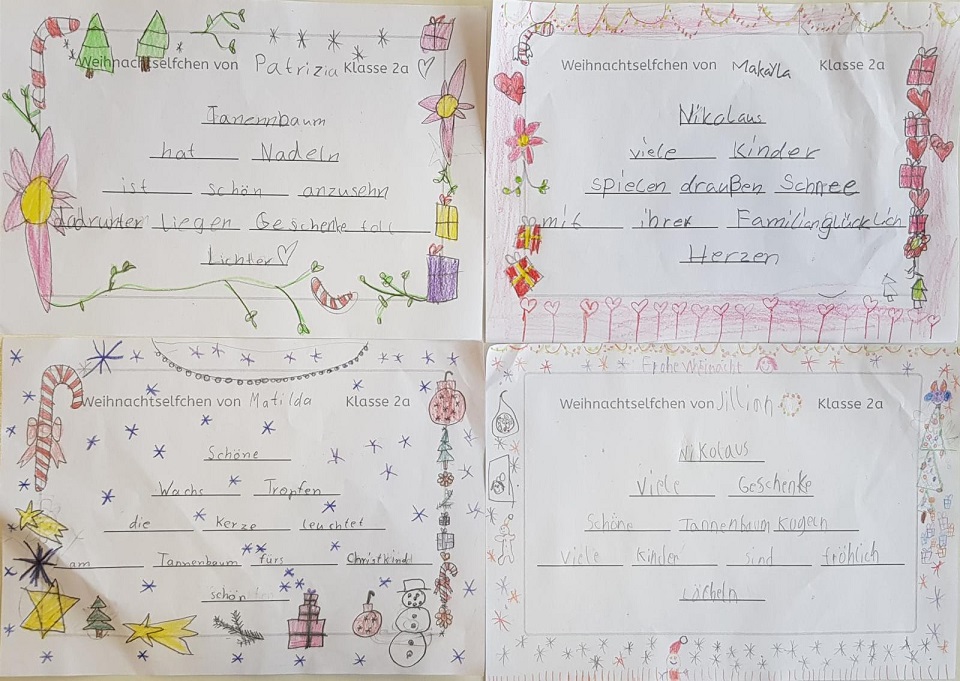 Weihnachtselfchen von Patrizia Klasse 2a
Tanennbaum
hat Nadeln
ist schön anzusehn
dadrunter liegen Geschenke toll
Lichter
Weihnachtselfchen von Makayla Klasse 2a
Nikolaus
viele Kinder
spielen draußen Schnee
mit ihrer Familian glücklich
Herzen
Weihnachtselfchen von Matilda Klasse 2a
Schöne
Wachs Tropfen
die Kerze leuchtet
am Tannenbaum fürs Christkind
schön
Frohe Weihnacht
Weihnachtselfchen von Jillian Klasse 2a
Nikolaus
Viele Geschenke
Schöne Tannenbaum Kugeln
Viele Kinder sind fröhlich
Lächeln